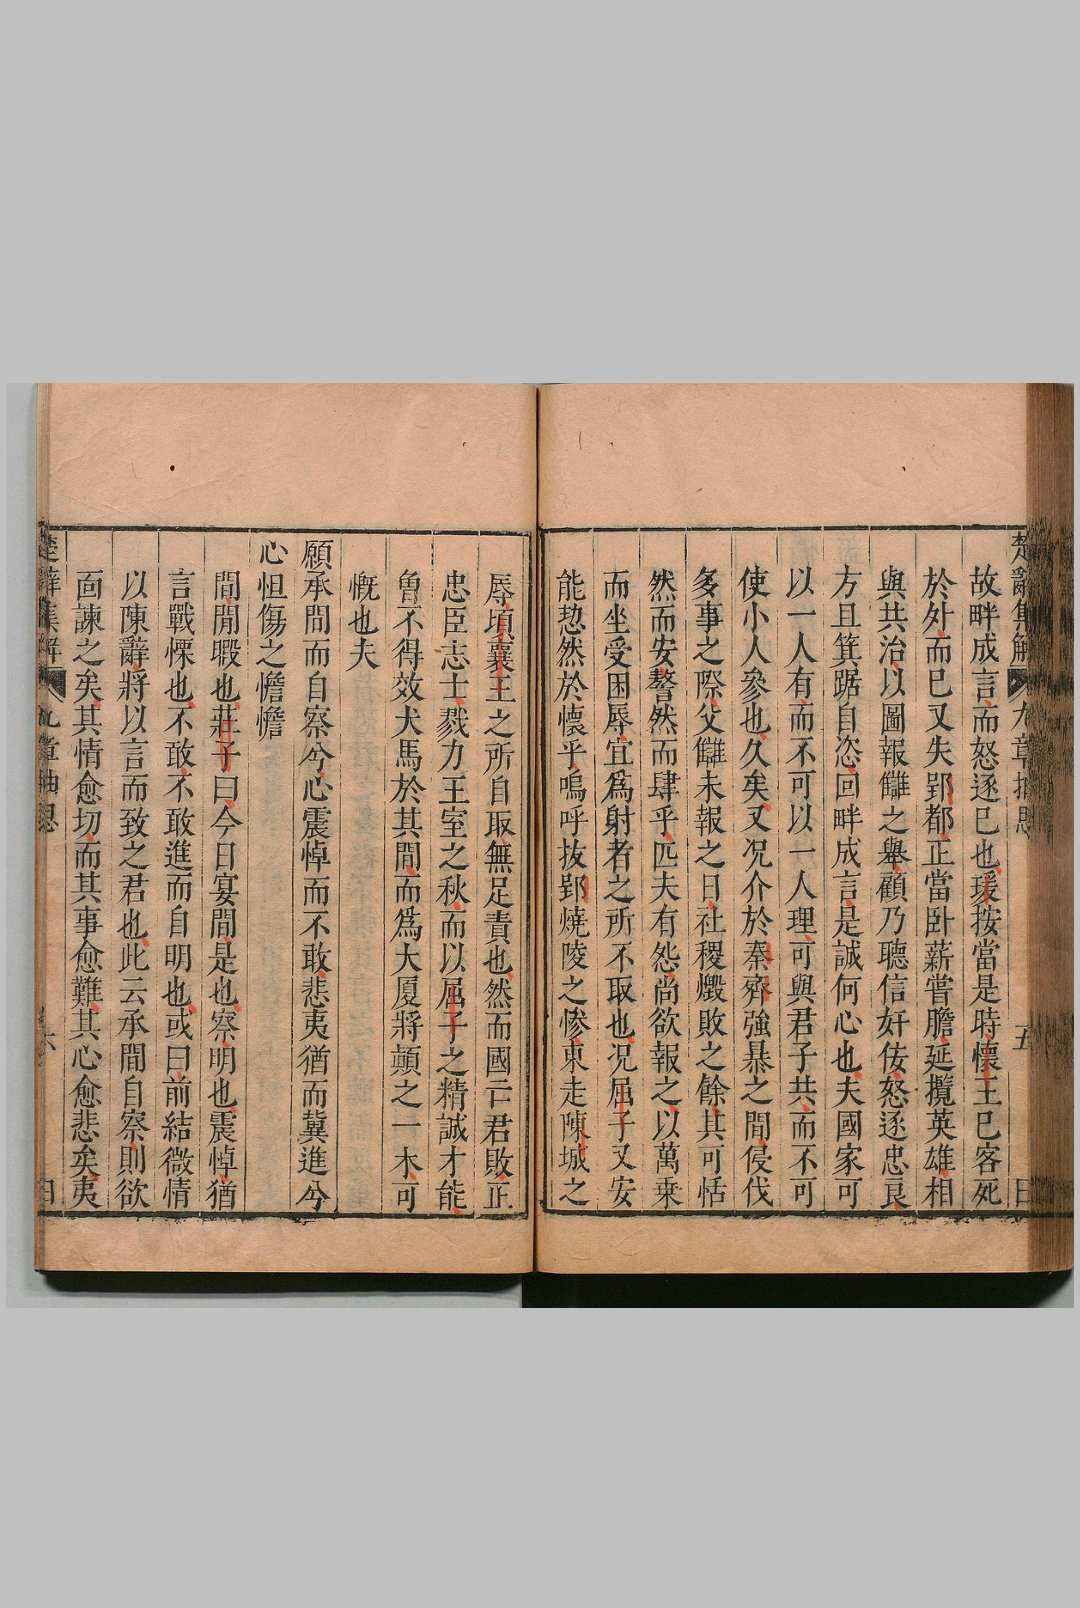 楚辭集解 九章抽思 五
故畔成言而怒逐已也瑗按當是時懷王已客死
於外而已又失郢都正當卧薪嘗膽延攬英雄相
與共治以圖報讎之舉顧乃聽信奸佞怒逐忠良
方且箕踞自恣回畔成言是誠何心也夫國家可
以一人有而不可以一人理可與君子共而不可
使小人參也久矣又况介於秦齊強暴之間侵伐
多事之際父讎未報之日社稷燬敗之餘其可恬
然而安謷然而肆乎匹夫有怨尚欲報之以萬乘
而坐受困辱宜爲射者之所不取也况屈子又安
能恝然於懷乎嗚呼抜郢燒陵之慘東走陳城之
辱頃襄王之所自取無足責也然而國亡君敗正
忠臣志士戮力王室之秋而以屈子之精誠才能
魯不得效犬馬於其間而爲大厦將顛之一木可
慨也夫
願承間而自察兮心震悼而不敢悲夷猶而冀進兮
心怛傷之憺憺
間閒暇也莊子曰今日宴間是也察明也震悼猶
言戰慄也不敢不敢進而自明也或曰前結微情
以陳辭將以言而致之君也此云承間自察則欲
面諫之矣其情愈切而其事愈難其心愈悲矣夷
楚辭集解 九章抽思 六